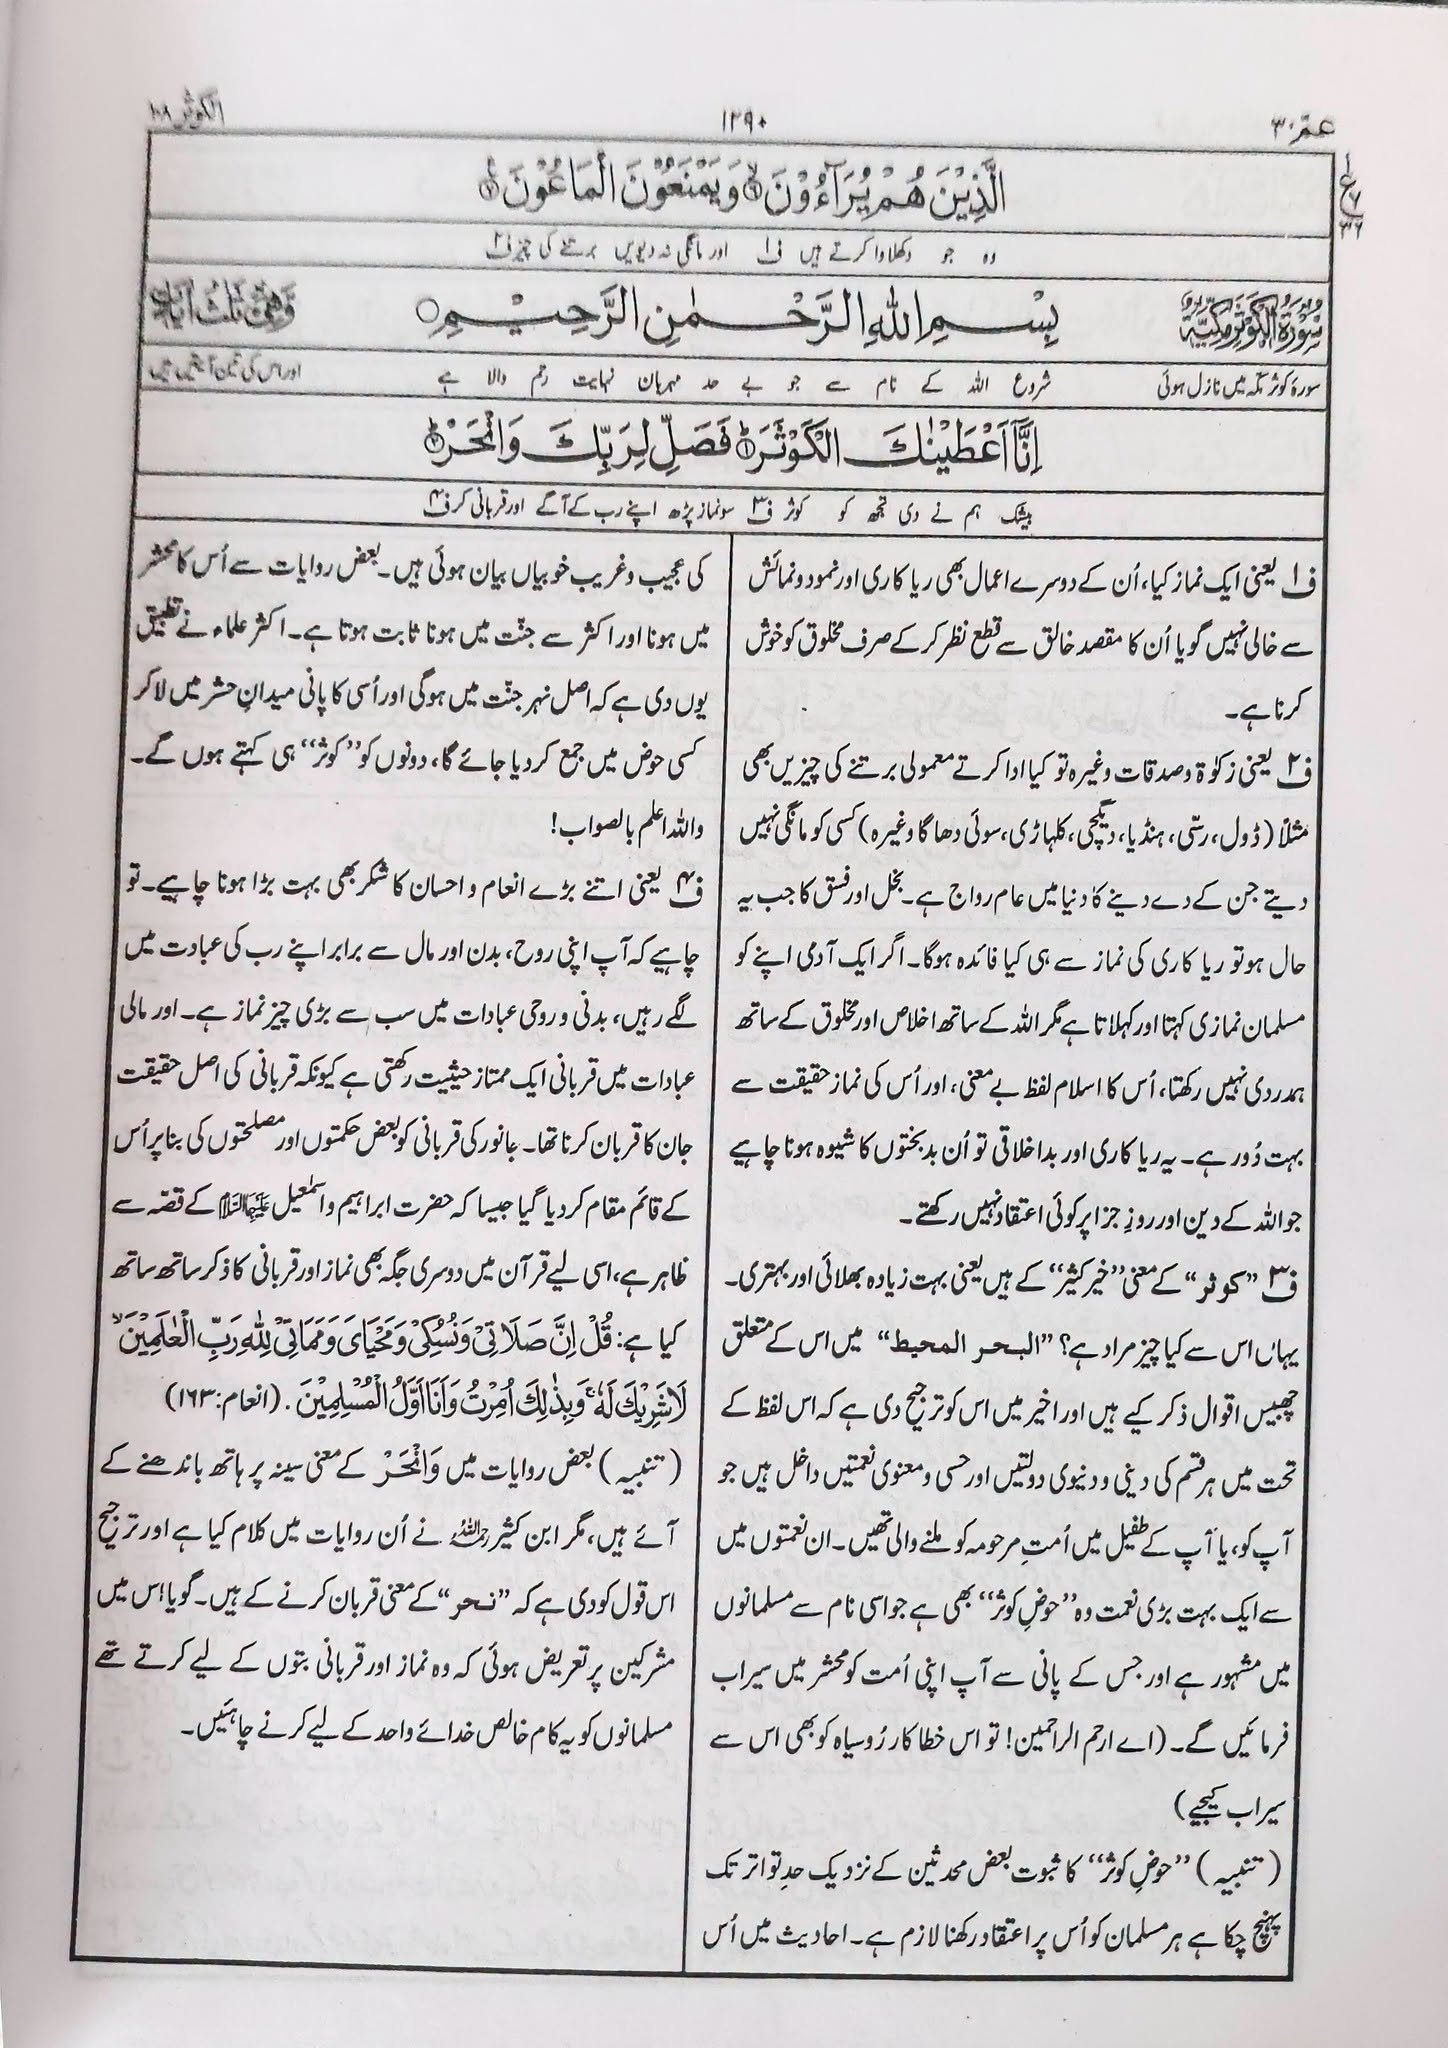 عمّ ٣٠
١٢٩٠
الکوثر ١٠٨
الَّذِيْنَ هُمْ يُرَآءُوْنَ ۙ﴿٦﴾ وَيَمْنَعُوْنَ الْمَاعُوْنَ ﴿٧﴾
ع
٧
٣٢
وہ جو دکھلاوا کرتے ہیں ف١ اور مانگی نہ دیویں برتنے کی چیز ف٢
سُوْرَةُ الْكَوْثَرِ مَكِّيَّةٌ
بِسْمِ اللهِ الرَّحْمٰنِ الرَّحِيْمِ
وَهِيَ ثَلٰثُ اٰيَاتٍ
سورۂ کوثر مکّہ میں نازل ہوئی
شروع اللہ کے نام سے جو بے حد مہربان نہایت رحم والا ہے
اور اس کی تین آیتیں ہیں
اِنَّآ اَعْطَيْنٰكَ الْكَوْثَرَ ﴿١﴾ فَصَلِّ لِرَبِّكَ وَانْحَرْ ﴿٢﴾
بیشک ہم نے دی تجھ کو کوثر ف٣ سو نماز پڑھ اپنے رب کے آگے اور قربانی کر ف۴
ف١ یعنی ایک نماز کیا، اُن کے دوسرے اعمال بھی ریا کاری اور نمود و نمائش
سے خالی نہیں گویا اُن کا مقصد خالق سے قطع نظر کر کے صرف مخلوق کو خوش
کرنا ہے۔
ف٢ یعنی زکوٰۃ و صدقات وغیرہ تو کیا ادا کرتے معمولی برتنے کی چیزیں بھی
مثلاً (ڈول، رسّی، ہنڈیا، دیگچی، کلہاڑی، سوئی دھاگا وغیرہ) کسی کو مانگی نہیں
دیتے جن کے دے دینے کا دنیا میں عام رواج ہے۔ بخل اور فسق کا جب یہ
حال ہو تو ریا کاری کی نماز سے ہی کیا فائدہ ہوگا۔ اگر ایک آدمی اپنے کو
مسلمان نمازی کہتا اور کہلاتا ہے مگر اللہ کے ساتھ اخلاص اور مخلوق کے ساتھ
ہمدردی نہیں رکھتا، اُس کا اسلام لفظ بے معنی، اور اُس کی نماز حقیقت سے
بہت دُور ہے۔ یہ ریا کاری اور بد اخلاقی تو اُن بدبختوں کا شیوہ ہونا چاہیے
جو اللہ کے دین اور روزِ جزا پر کوئی اعتقاد نہیں رکھتے۔
ف٣ ”کوثر“ کے معنی ”خیر کثیر“ کے ہیں یعنی بہت زیادہ بھلائی اور بہتری۔
یہاں اس سے کیا چیز مراد ہے؟ ”البحر المحیط“ میں اس کے متعلق
چھبیس اقوال ذکر کیے ہیں اور اخیر میں اس کو ترجیح دی ہے کہ اس لفظ کے
تحت میں ہر قسم کی دینی و دنیوی دولتیں اور حسی و معنوی نعمتیں داخل ہیں جو
آپ کو، یا آپ کے طفیل میں اُمتِ مرحومہ کو ملنے والی تھیں۔ ان نعمتوں میں
سے ایک بہت بڑی نعمت وہ ”حوضِ کوثر“ بھی ہے جو اسی نام سے مسلمانوں
میں مشہور ہے اور جس کے پانی سے آپ اپنی اُمت کو محشر میں سیراب
فرمائیں گے۔ (اے ارحم الراحمین! تو اس خطا کار رُوسیاہ کو بھی اس سے
سیراب کیجیے)
(تنبیہ) ”حوضِ کوثر“ کا ثبوت بعض محدثین کے نزدیک حدِ تواتر تک
پہنچ چکا ہے ہر مسلمان کو اُس پر اعتقاد رکھنا لازم ہے۔ احادیث میں اُس
کی عجیب و غریب خوبیاں بیان ہوئی ہیں۔ بعض روایات سے اُس کا محشر
میں ہونا اور اکثر سے جنّت میں ہونا ثابت ہوتا ہے۔ اکثر علماء نے تطبیق
یوں دی ہے کہ اصل نہر جنّت میں ہوگی اور اُسی کا پانی میدانِ حشر میں لا کر
کسی حوض میں جمع کر دیا جائے گا، دونوں کو ”کوثر“ ہی کہتے ہوں گے۔
واللہ اعلم بالصواب!
ف۴ یعنی اتنے بڑے انعام و احسان کا شکر بھی بہت بڑا ہونا چاہیے۔ تو
چاہیے کہ آپ اپنی روح، بدن اور مال سے برابر اپنے رب کی عبادت میں
لگے رہیں، بدنی و روحی عبادات میں سب سے بڑی چیز نماز ہے۔ اور مالی
عبادات میں قربانی ایک ممتاز حیثیت رکھتی ہے کیونکہ قربانی کی اصل حقیقت
جان کا قربان کرنا تھا۔ جانور کی قربانی کو بعض حکمتوں اور مصلحتوں کی بنا پر اُس
کے قائم مقام کر دیا گیا جیسا کہ حضرت ابراہیم و اسمٰعیل علیہما السلام کے قصّہ سے
ظاہر ہے، اسی لیے قرآن میں دوسری جگہ بھی نماز اور قربانی کا ذکر ساتھ ساتھ
کیا ہے: قُلْ اِنَّ صَلَاتِیْ وَنُسُكِیْ وَمَحْيَایَ وَمَمَاتِیْ لِلّٰهِ رَبِّ الْعٰلَمِيْنَ ۙ
لَا شَرِيْكَ لَهٗ ۚ وَبِذٰلِكَ اُمِرْتُ وَاَنَا اَوَّلُ الْمُسْلِمِيْنَ . (انعام: ١٦٣)
(تنبیہ) بعض روایات میں وَانْحَرْ کے معنی سینہ پر ہاتھ باندھنے کے
آئے ہیں، مگر ابن کثیر رحمہ اللہ نے اُن روایات میں کلام کیا ہے اور ترجیح
اس قول کو دی ہے کہ ”نحر“ کے معنی قربان کرنے کے ہیں۔ گویا اِس میں
مشرکین پر تعریض ہوئی کہ وہ نماز اور قربانی بتوں کے لیے کرتے تھے
مسلمانوں کو یہ کام خالص خدائے واحد کے لیے کرنے چاہئیں۔